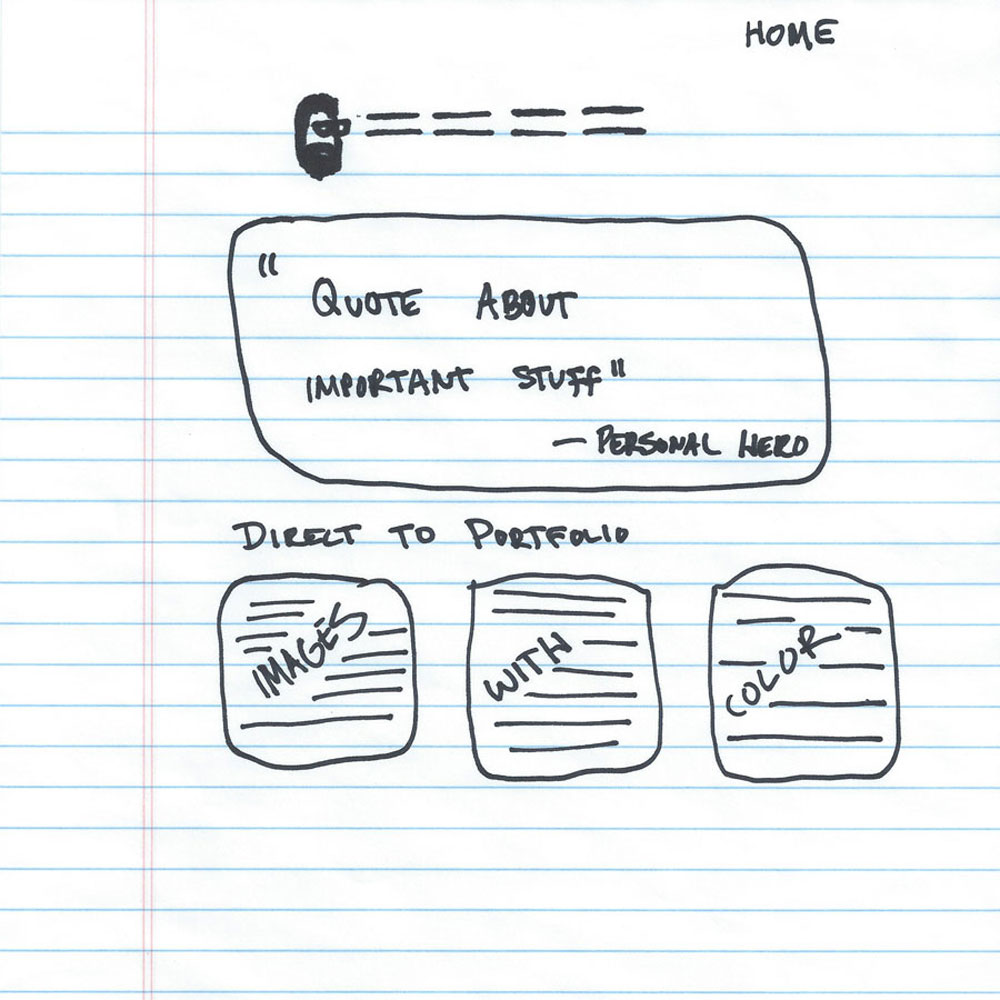 HOME
" QUOTE ABOUT
IMPORTANT STUFF"
— PERSONAL HERO
DIRECT TO PORTFOLIO
IMAGES
WITH
COLOR